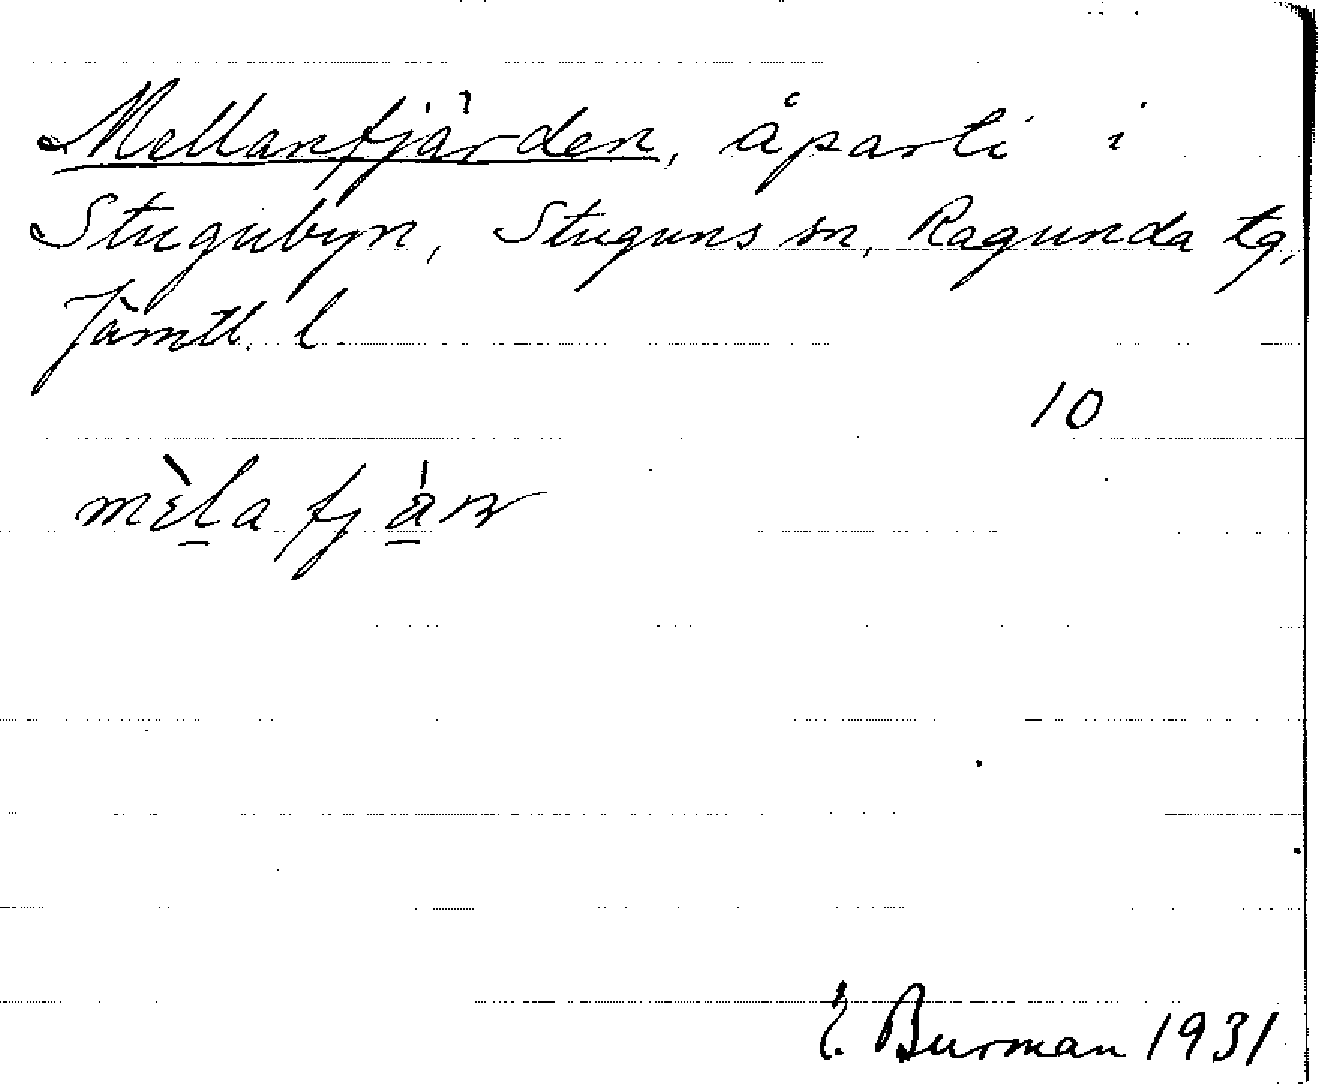 Mellanfjärden, åparti i
Stugubyn, Stuguns sn, Ragunda tg,
Jämtl. l
10
E. Burman 1931